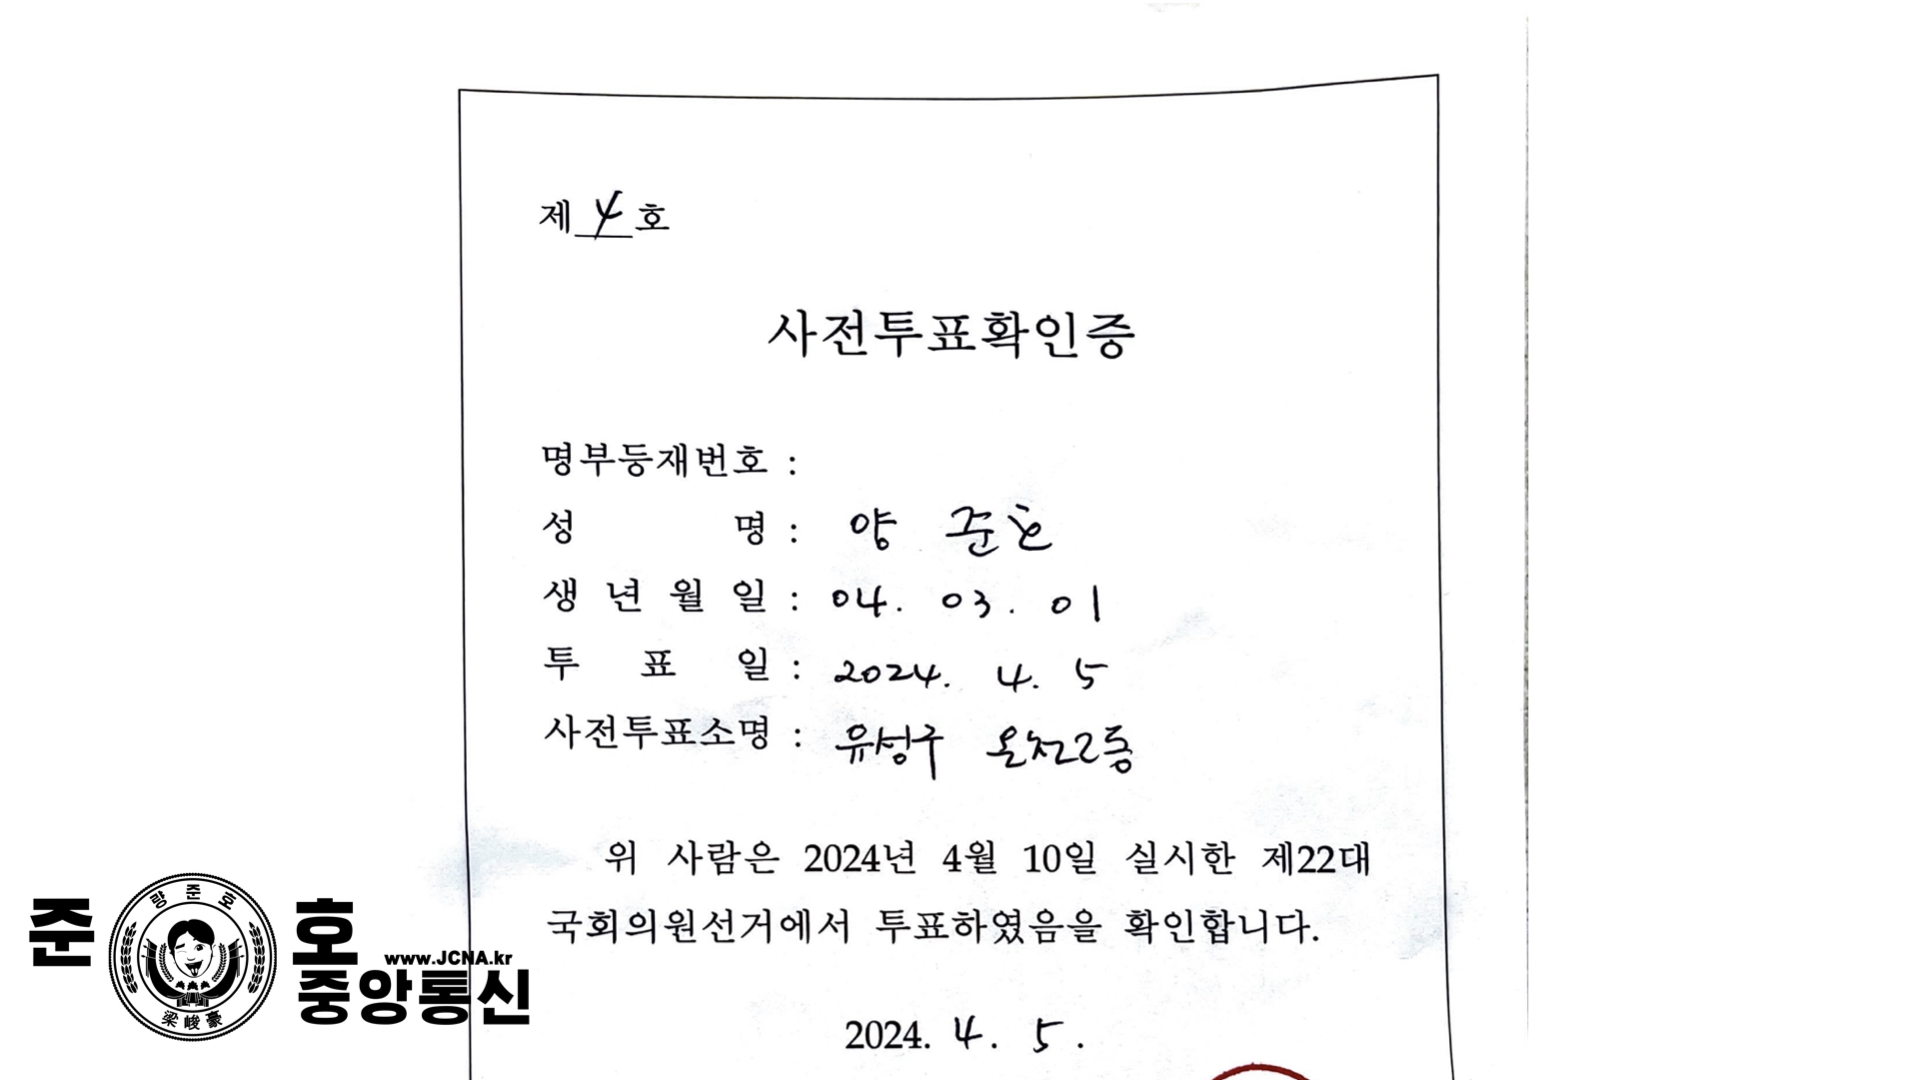 제 4 호
사전투표확인증
명부등재번호 :
성 명 : 양 준호
생 년 월 일 : 04. 03. 01
투 표 일 : 2024. 4. 5
사전투표소명 : 유성구 온천2동
위 사람은 2024년 4월 10일 실시한 제22대
국회의원선거에서 투표하였음을 확인합니다.
2024. 4. 5.
준 호
량준호
梁峻豪
www.JCNA.kr
중앙통신